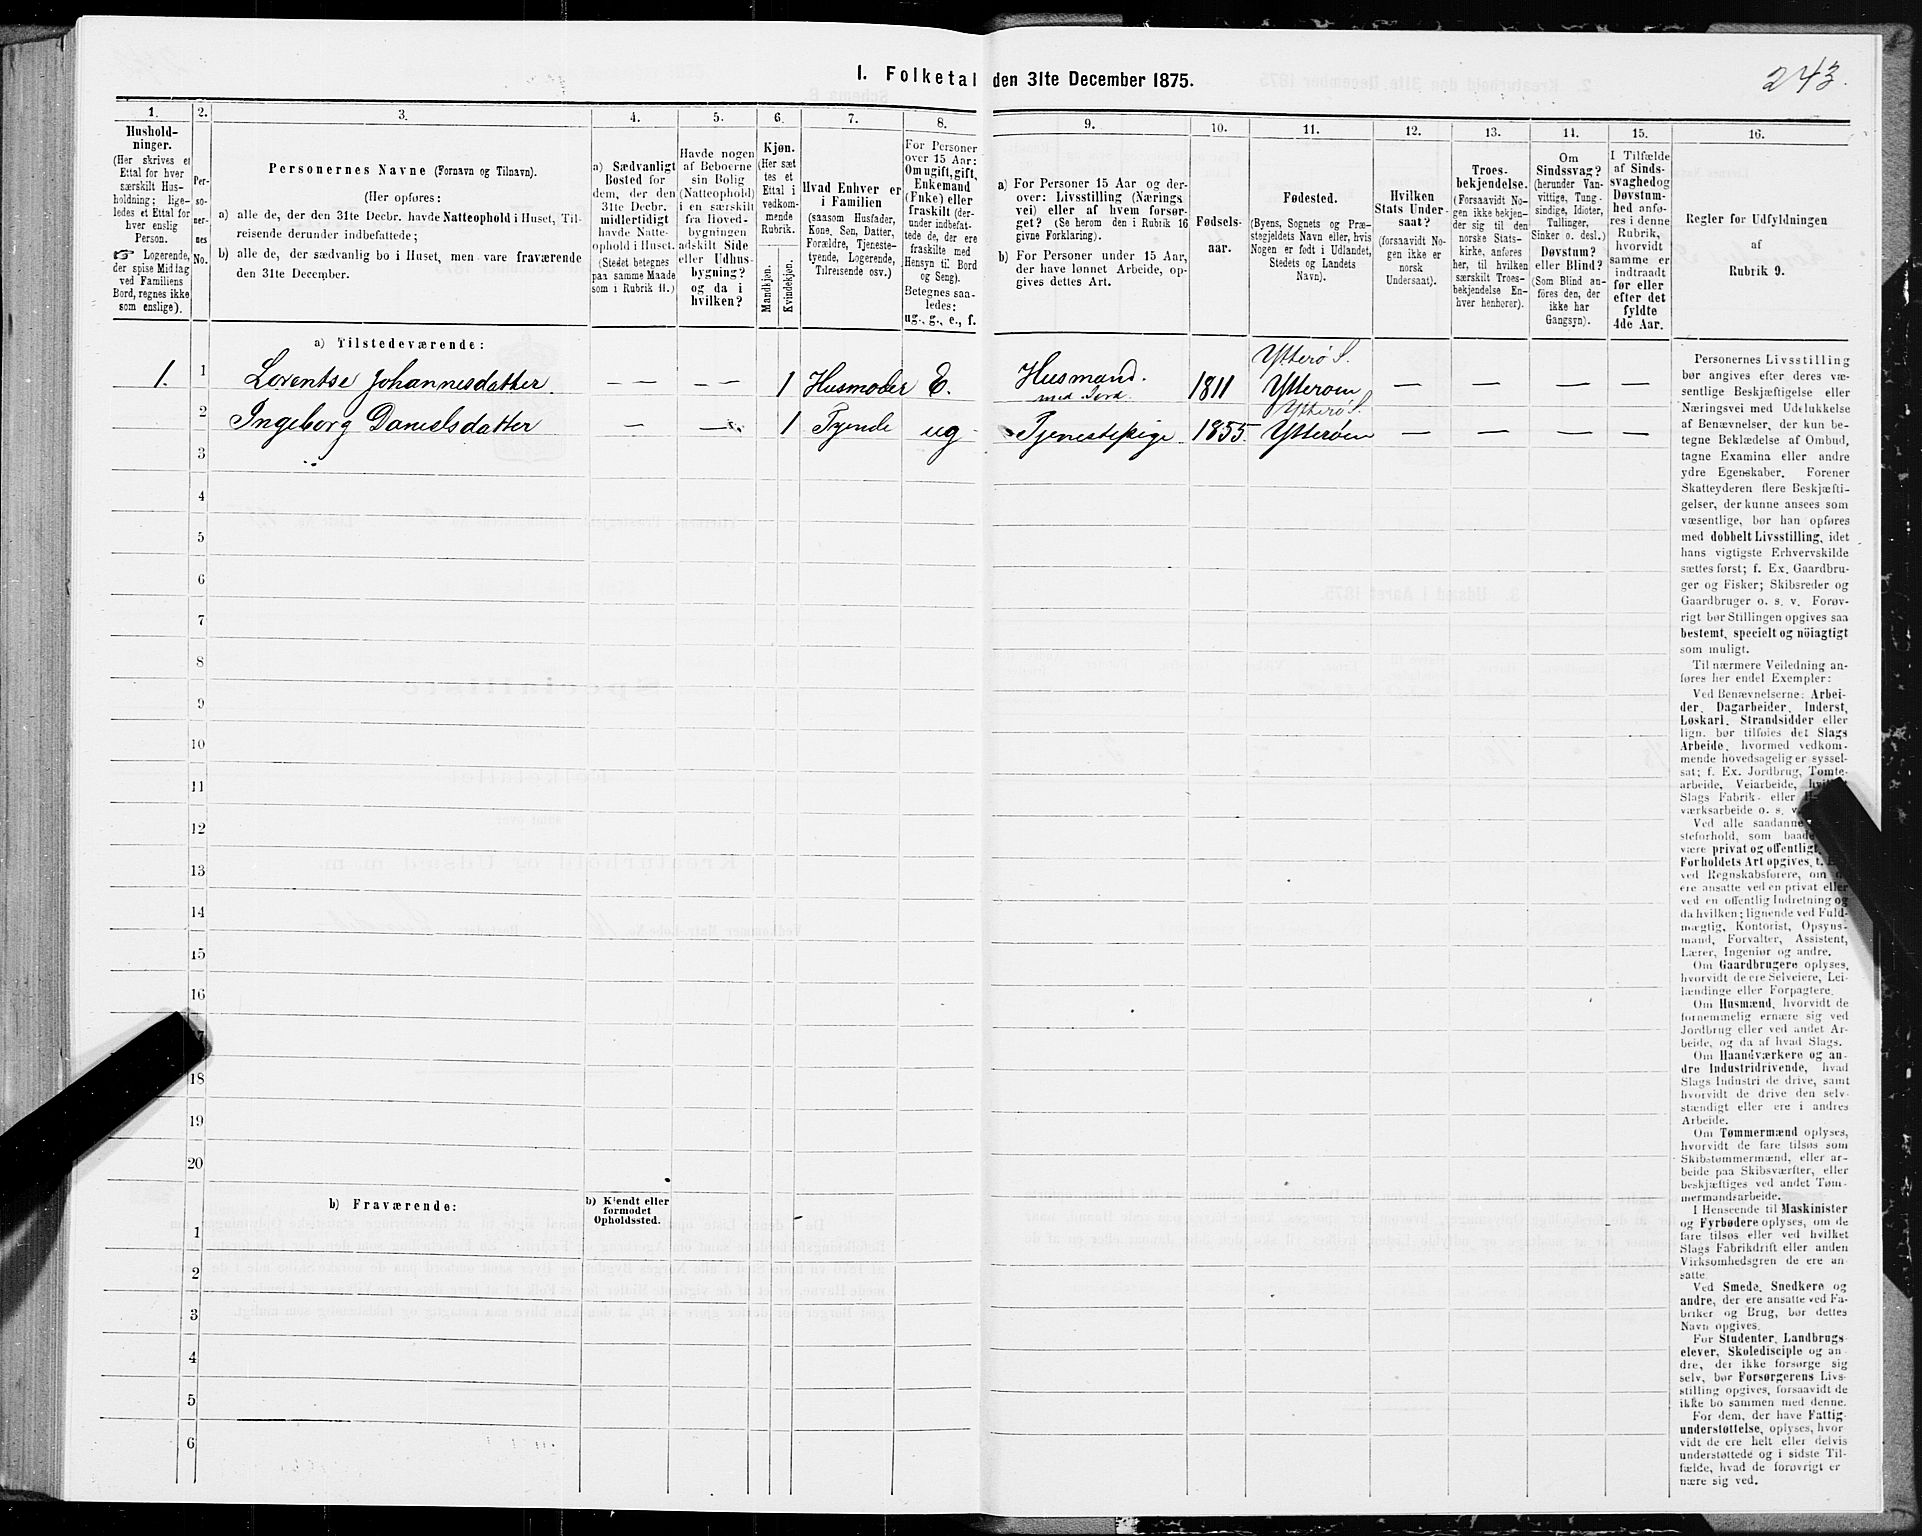 I. Folketal den 31te December 1875.
243.
1.
Hushold-
ninger.
(Her skrives et
Ettal for hver
særskilt Hus-
holdning; lige-
ledes et Ettal for
hver enslig
Person.
☞ Logerende,
der spise Middag
ved Familiens
Bord, regnes ikke
som enslige).
2.
Per-
so-
ner-
nes
No.
3.
Personernes Navne (Fornavn og Tilnavn).
(Her opføres:
a) alle de, der den 31te Decbr. havde Natteophold i Huset, Til-
reisende derunder indbefattede;
b) alle de, der sædvanlig bo i Huset, men vare fraværende
den 31te December.
4.
a) Sædvanligt
Bosted for
dem, der den
31te Decbr.
midlertidigt
havde Natte-
ophold i Huset.
(Stedet betegnes
paa samme Maade
som i Rubrik 11.)
5.
Havde nogen
af Beboerne
sin Bolig
(Natteophold)
i en særskilt
fra Hoved-
bygningen
adskilt Side
eller Udhus-
bygning?
og da i
hvilken?
6.
Kjøn.
(Her sæt
tes et
Ettal i
vedkom-
mende
Rubrik.
Mandkjøn.
Kvindekjøn.
7.
Hvad Enhver er
i Familien
(saasom Husfader,
Kone, Søn, Datter,
Forældre, Tjeneste-
tyende, Logerende,
Tilreisende osv.)
8.
For Personer
over 15 Aar:
Om ugift, gift,
Enkemand
(Enke) eller
fraskilt (der-
under indbefat-
tede de, der ere
fraskilte med
Hensyn til Bord
og Seng).
Betegnes saa-
ledes:
ug., g., e., f.
9.
a) For Personer 15 Aar og der-
over: Livsstilling (Nærings
vei) eller af hvem forsør-
get? (Se herom den i Rubrik 16
givne Forklaring).
b) For Personer under 15 Aar,
der have lønnet Arbeide, op-
gives dettes Art.
10.
Fødsels-
aar.
11.
Fødested.
(Byens, Sognets og Præ-
stegjeldets Navn eller, hvis
Nogen er født i Udlandet,
Stedets og Landets
Navn).
12.
Hvilken
Stats Under-
saat?
(forsaavidt No-
gen ikke er
norsk
Undersaat).
13.
Troes-
bekjendelse.
(Forsaavidt No-
gen ikke bekjen-
der sig til den
norske Stats-
kirke, anføres
her, til hvilken
særskilt Troes-
bekjendelse En-
hver henhører).
14.
Om
Sindssvag?
(herunder Van-
vittige, Tung-
sindige, Idioter,
Tullinger,
Sinker o. desl.)
Døvstum?
eller Blind?
(Som Blind an-
føres den, der
ikke har
Gangsyn).
15.
I Tilfælde
af Sinds-
svaghed og
Døvstum-
hed anfø-
res i denne
Rubrik,
hvorvidt
samme er
indtraadt
før eller
efter det
fyldte
4de Aar.
16.
Regler for Udfyldningen
af
Rubrik 9.
a) Tilstedeværende:
Ytterø S.
1. 1 Lorentse Johannesdatter — — — — 1 Husmoder E. Husmand. 1811 Ytterøen — — — —
med Jord.
Ytterø S.
2 Ingeborg Danielsdatter — — 1 Tyende ug Tjenestepige 1855 Ytterøen — — — —
3
4
5
6
7
8
9
10
11
12
13
14
15
16
18
19
20
b) Fraværende:
b) Kjendt eller
formodet
Opholdssted.
1
2
3
4
5
6
Personernes Livsstilling
bør angives efter deres væ-
sentlige Beskjæftigelse eller
Næringsvei med Udelukkelse
af Benævnelser, der kun be-
tegne Beklædelse af Ombud,
tagne Examina eller andre
ydre Egenskaber. Forener
Skatteyderen flere Beskjæfti-
gelser, der kunne ansees som
væsentlige, bør han opføres
med dobbelt Livsstilling, idet
hans vigtigste Erhvervskilde
sættes først; f. Ex. Gaardbru-
ger og Fisker; Skibsreder og
Gaardbruger o. s. v. Forøv-
rigt bør Stillingen opgives saa
bestemt, specielt og nöiagtigt
som muligt.
Til nærmere Veiledning an-
føres her endel Exempler:
Ved Benævnelserne: Arbei-
der, Dagarbeider, Inderst,
Løskarl, Strandsidder eller
lign. bør tilføies det Slags
Arbeide, hvormed vedkom-
mende hovedsagelig er syssel-
sat; f. Ex. Jordbrug, Tomte-
arbeide, Veiarbeide,
Slags Fabrik- eller
værksarbeide o. s. v.
Ved alle saadanne
steforhold, som baade
være privat og offentligt,
Forholdets Art opgives, t.
ved Regnskabsførere, om
ere ansatte ved en privat eller
ved en offentlig Indretning og
da hvilken; lignende ved Fuld-
mægtig, Kontorist, Opsyns-
mand, Forvalter, Assistent,
Lærer, Ingeniør og andre.
Om Gaardbrugere oplyses,
hvorvidt de ere Selveiere, Lei-
lændinge eller Forpagtere.
Om Husmænd, hvorvidt de
fornemmelig ernære sig ved
Jordbrug eller ved andet Ar-
beide, og da af hvad Slags.
Om Haandværkere og an-
dre Industridrivende, hvad
Slags Industri de drive, samt
hvorvidt de drive den selv-
stændigt eller ere i andres
Arbeide.
Om Tømmermænd oplyses,
hvorvidt de fare tilsøs som
Skibstømmermænd, eller ar-
beide paa Skibsværfter, eller
beskjæftiges ved andet Tøm-
mermandsarbeide.
I Henseende til Maskinister
og Fyrbødere oplyses, om de
fare tilsøs eller ved hvilket
Slags Fabrikdrift eller anden
Virksomhedsgren de ere an-
satte.
Ved Smede, Snedkere og
andre, der ere ansatte ved Fa-
briker og Brug, bør dettes
Navn opgives.
For Studenter, Landbrugs-
elever, Skoledisciple og an-
dre, der ikke forsørge sig
selv, bør Forsørgerens Livs-
stilling opgives, forsaavidt de
ikke bo sammen med denne.
For dem, der have Fattig-
understøttelse, oplyses, hvor-
vidt de ere helt eller delvis
understøttede og i sidste Til-
fælde, hvad de forøvrigt er
nære sig ved.